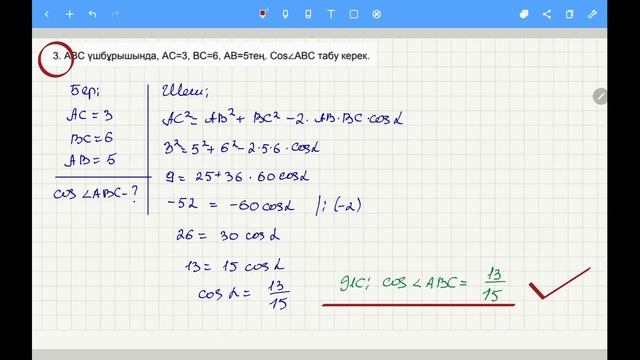 3. ABC үшбұрышында, AC=3, BC=6, AB=5тең. Cos∠ABC табу керек.
Бер:
AC = 3
BC = 6
AB = 5
cos ∠ABC - ?
Шеш:
AC² = AB² + BC² - 2 · AB · BC · cos α
3² = 5² + 6² - 2·5·6 · cos α
9 = 25 + 36 · 60 cos α
-52 = -60 cos α /: (-2)
26 = 30 cos α
13 = 15 cos α
cos α = 13/15
Ж/С: cos ∠ABC = 13/15